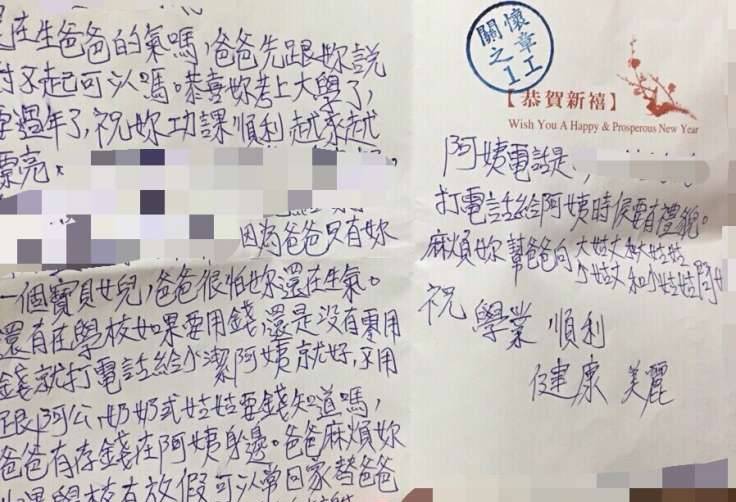 在生爸爸的氣嗎,爸爸先跟妳說
對不起可以嗎。恭喜妳考上大學了,
要過年了,祝妳功課順利越來越
漂亮。
因為爸爸只有妳
一個寶貝女兒,爸爸很怕妳還在生氣。
還有在學校如果要用錢,還是沒有零用
錢就打電話給小潔阿姨就好,不用
跟阿公、奶奶或姑姑要錢知道嗎,
爸爸有存錢在阿姨身邊。爸爸麻煩妳
學校有放假可以常回家替爸爸
關懷
之章
1工
【恭賀新禧】
Wish You A Happy & Prosperous New Year
阿姨電話是
打電話給阿姨時候要有禮貌。
麻煩妳幫爸爸向大姑丈和大姑姑
小姑丈和小姑姑問
祝
學業順利
健康美麗